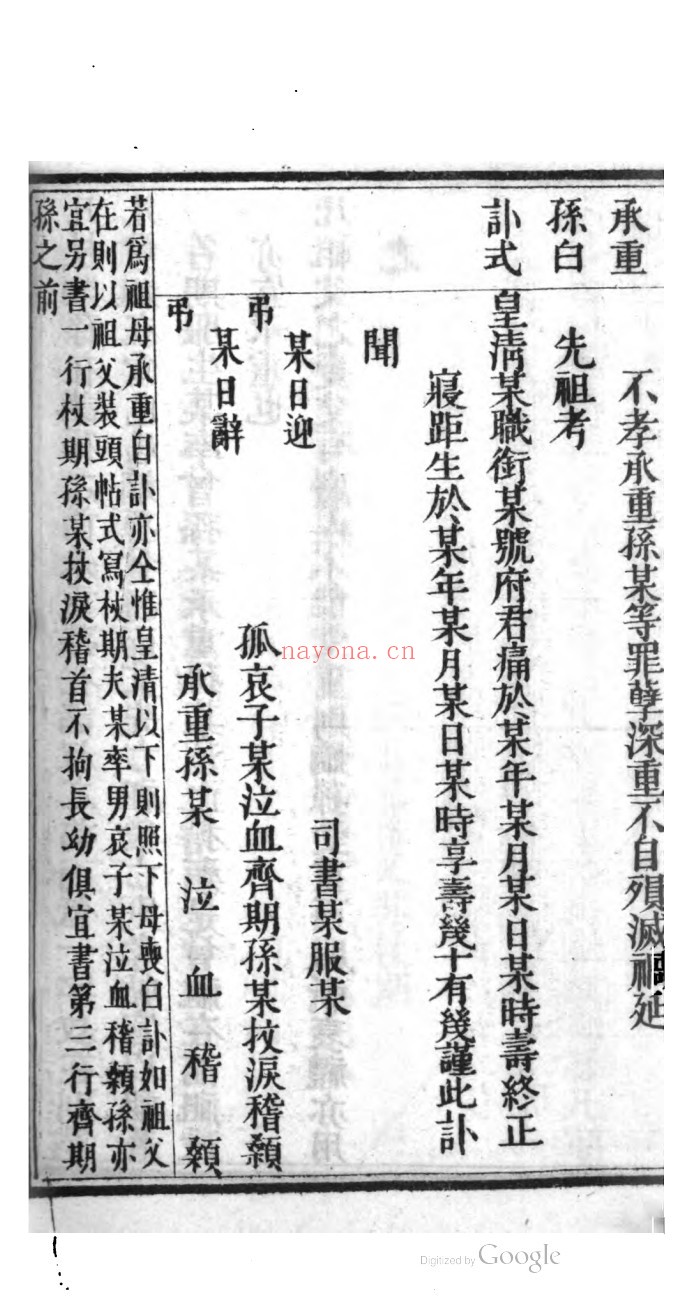 承重
孫白
訃式
不孝承重孫某等罪孽深重不自殞滅禍延
先祖考
皇清某職銜某號府君痛於某年某月某日某時壽終正
寢距生於某年某月某日某時享壽幾十有幾謹此訃
聞
司書某服某
某日迎
弔
孤哀子某泣血齊期孫某抆淚稽顙
某日辭
弔
承重孫某 泣 血 稽 顙
若爲祖母承重白訃亦仝惟皇清以下則照下母喪白訃如祖父
在則以祖父裝頭帖式寫杖期夫某率男哀子某泣血稽顙孫亦
宜另書一行杖期孫某抆淚稽首不拘長幼俱宜書第三行齊期
孫之前
nayona.cn
Digitized by Google